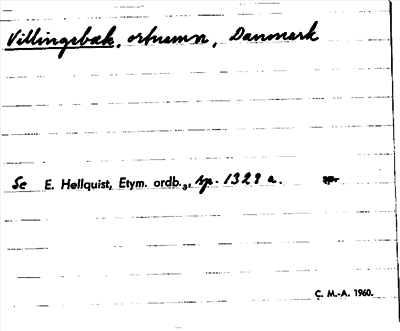 Villingebæk, ortnamn, Danmark
Se E. Hellquist, Etym. ordb.3, sp. 1329 a. sp.
C. M.-A. 1960.